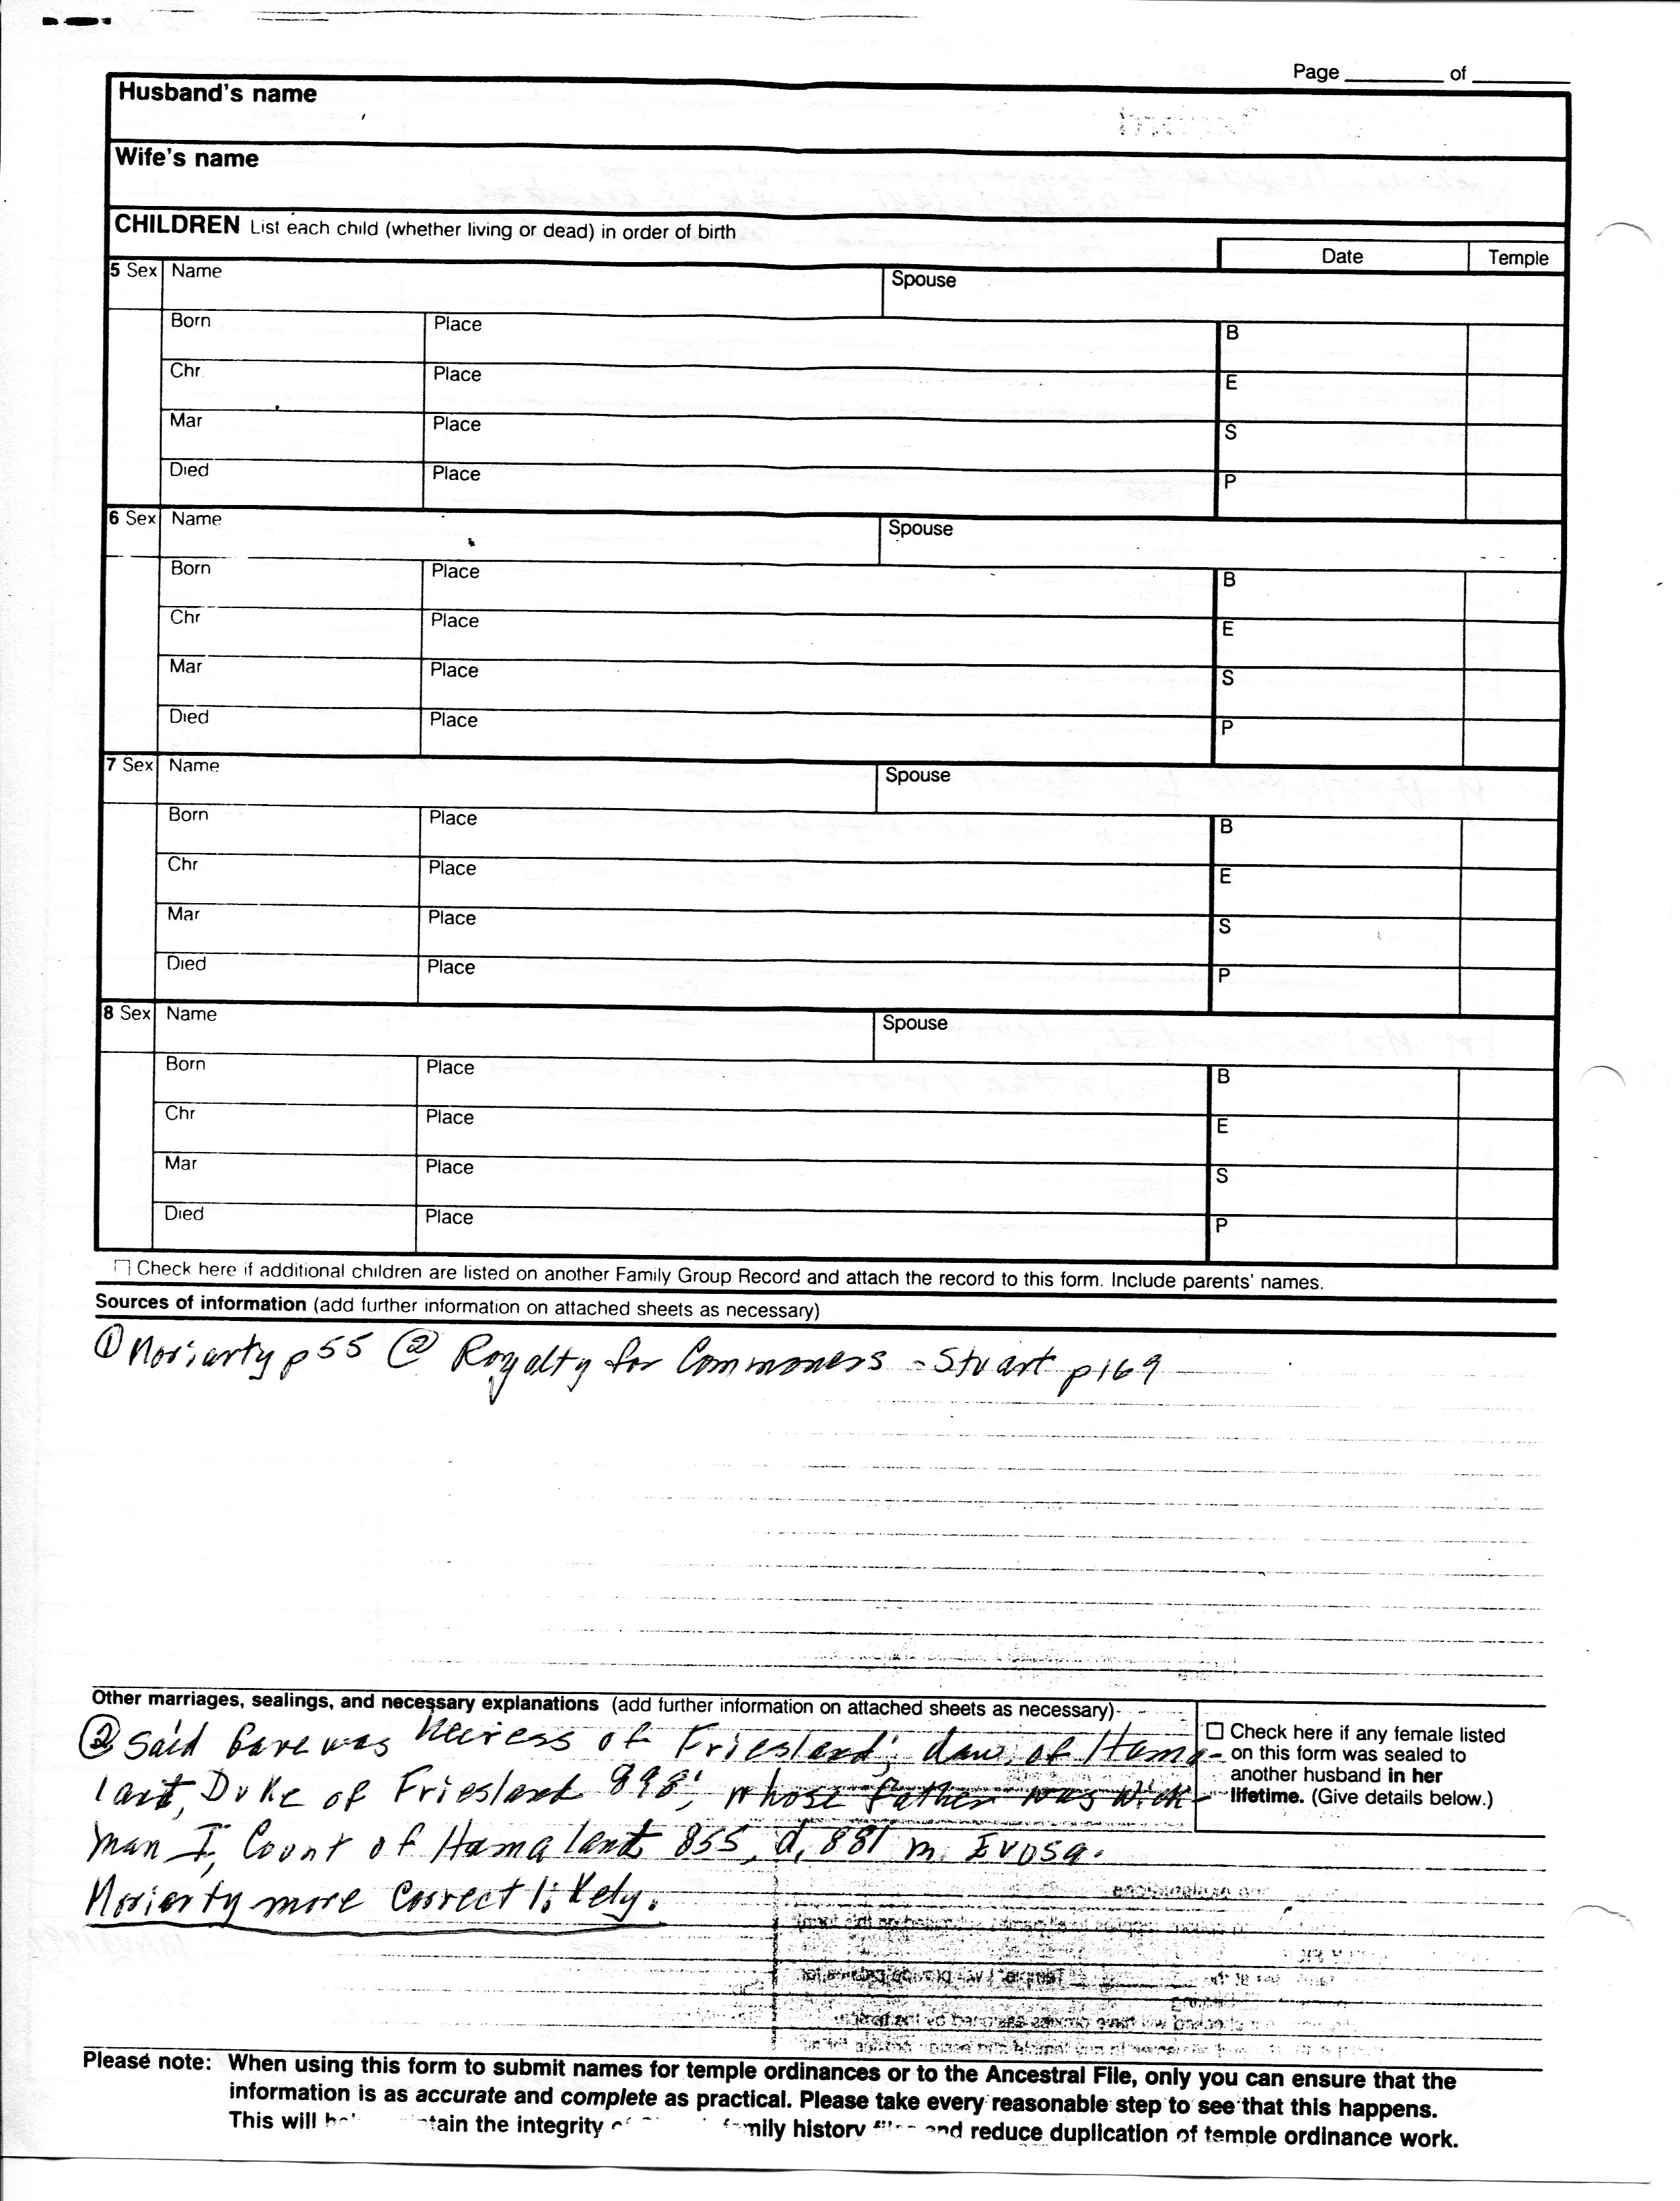 Page ______ of ______
Husband's name
Wife's name
CHILDREN List each child (whether living or dead) in order of birth
Date Temple
5 Sex Name Spouse
Born Place B
Chr Place E
Mar Place S
Died Place P
6 Sex Name Spouse
Born Place B
Chr Place E
Mar Place S
Died Place P
7 Sex Name Spouse
Born Place B
Chr Place E
Mar Place S
Died Place P
8 Sex Name Spouse
Born Place B
Chr Place E
Mar Place S
Died Place P
Check here if additional children are listed on another Family Group Record and attach the record to this form. Include parents' names.
Sources of information (add further information on attached sheets as necessary)
① Moriarty p 55 ② Royalty for Commoners - Stuart p 169
Other marriages, sealings, and necessary explanations (add further information on attached sheets as necessary)
② Said was Heiress of Friesland; dau. of Hama-
lant, Duke of Friesland 898; whose father was Wick-
man I, Count of Hamalant 855, d. 881 m. Evosa.
Moriarty more Correct likely.
Check here if any female listed
on this form was sealed to
another husband in her
lifetime. (Give details below.)
Please note: When using this form to submit names for temple ordinances or to the Ancestral File, only you can ensure that the
information is as accurate and complete as practical. Please take every reasonable step to see that this happens.
This will tain the integrity family history and reduce duplication of temple ordinance work.